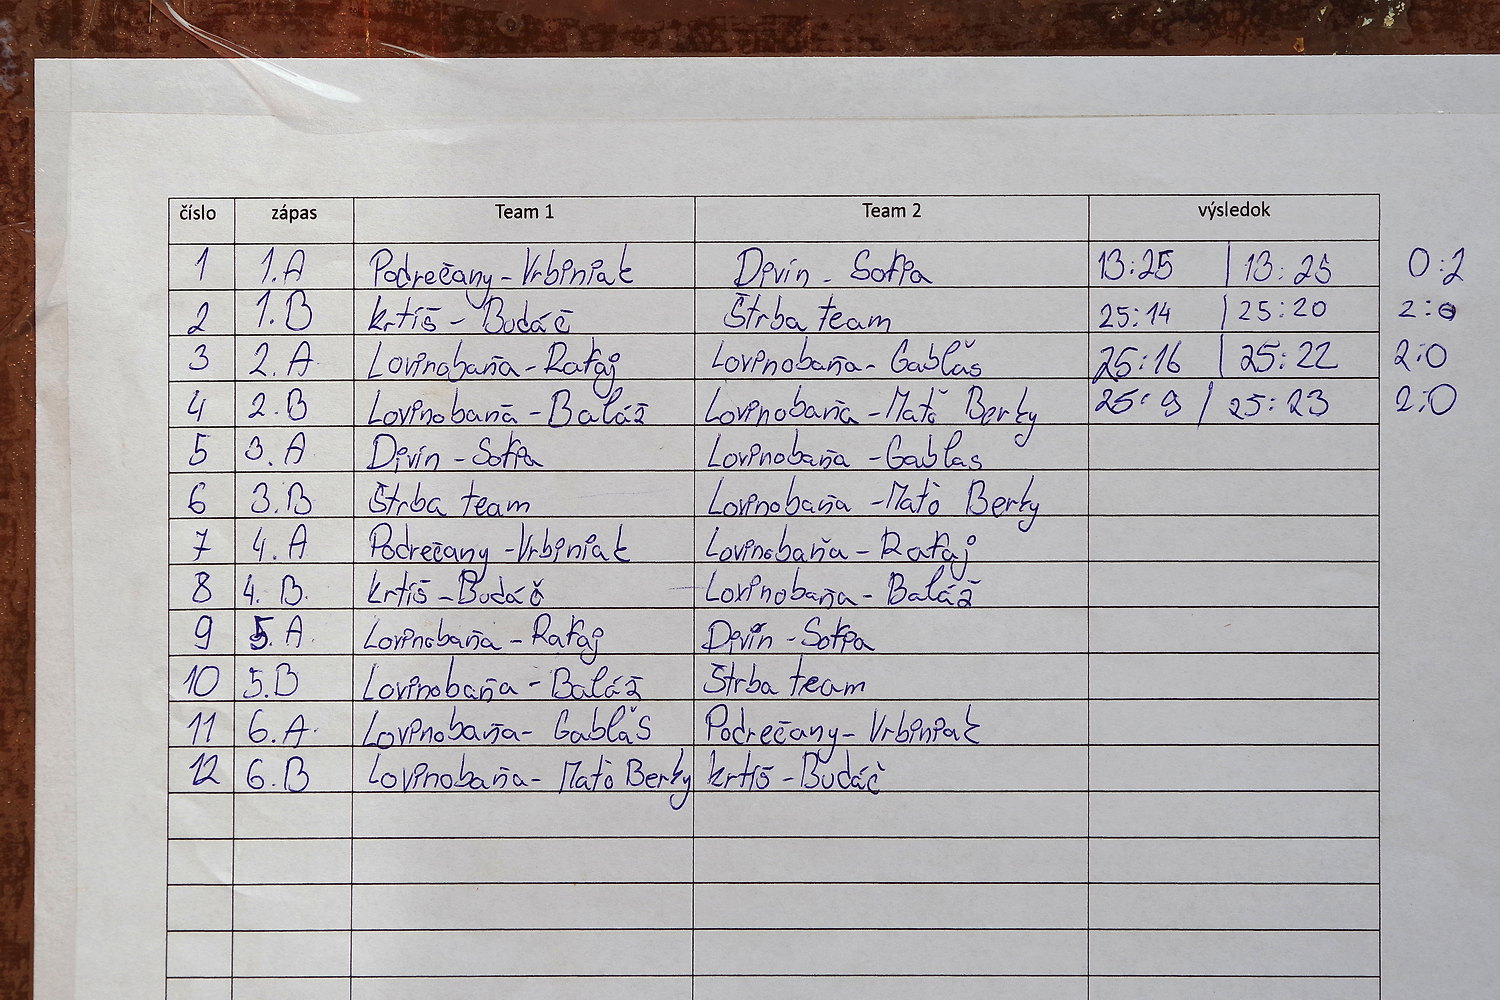 číslo zápas Team 1 Team 2 výsledok
1 1.A Podrečany - Vrbiniak Divín - Sotia 13:25 | 13:25 0:2
2 1.B Krtíš - Budáč Štrba team 25:14 | 25:20 2:0
3 2.A Lovinobaňa - Rataj Lovinobaňa - Gablas 25:16 | 25:22 2:0
4 2.B Lovinobaňa - Baláž Lovinobaňa - Maťo Berky 25:9 | 25:23 2:0
5 3.A Divín - Sotia Lovinobaňa - Gablas
6 3.B Štrba team Lovinobaňa - Maťo Berky
7 4.A Podrečany - Vrbiniak Lovinobaňa - Rataj
8 4.B. Krtíš - Budáč Lovinobaňa - Baláž
9 5.A. Lovinobaňa - Rataj Divín - Sotia
10 5.B Lovinobaňa - Baláž Štrba team
11 6.A. Lovinobaňa - Gablas Podrečany - Vrbiniak
12 6.B Lovinobaňa - Maťo Berky Krtíš - Budáč